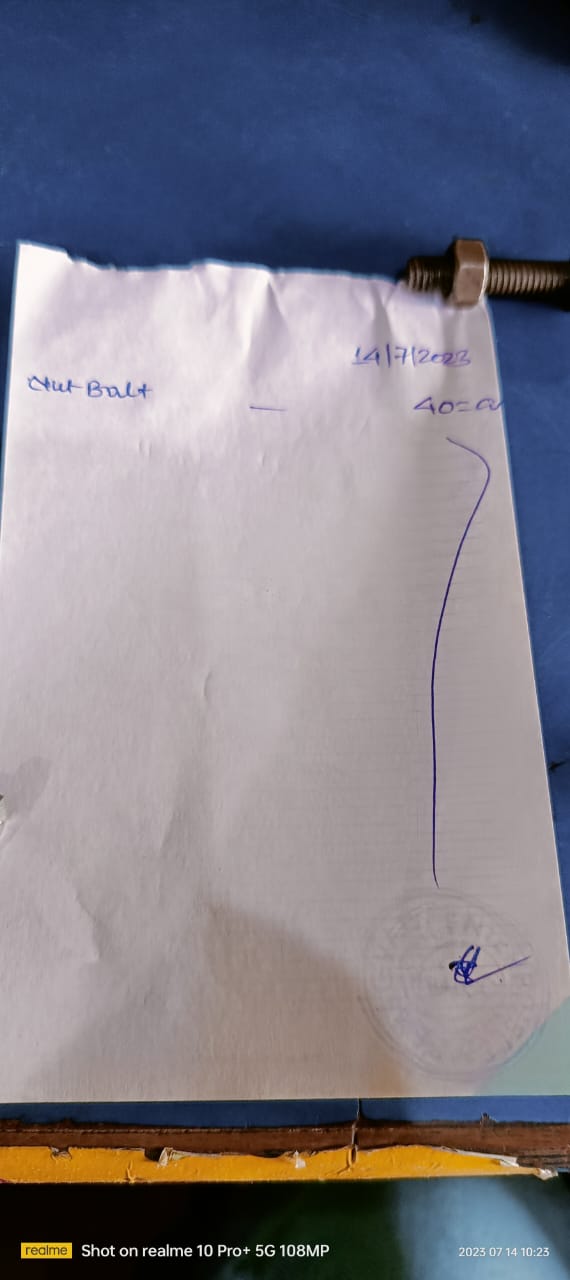 14/7/2023
Nut Balt — 40=00
realme Shot on realme 10 Pro+ 5G 108MP 2023 07 14 10:23